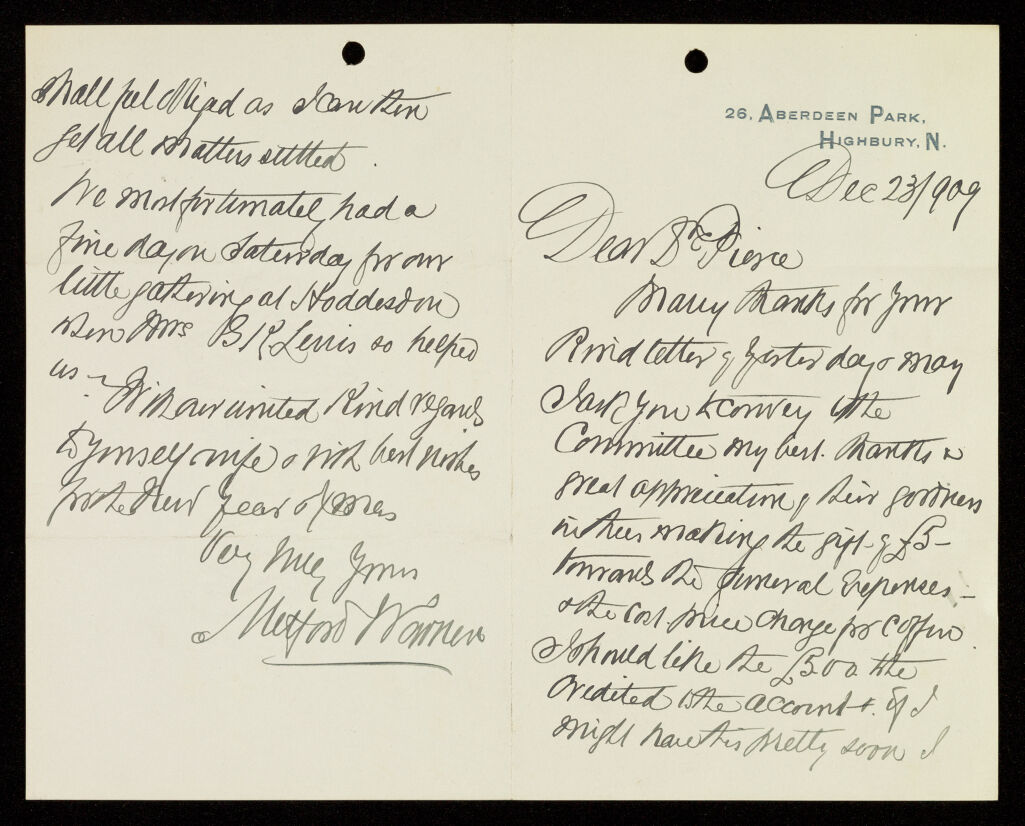 26, ABERDEEN PARK,
HIGHBURY, N.
Dec 23/909
Dear Dr Pierce
Many thanks for your
kind letter of yesterday & may
I ask you to convey to the
Committee my best thanks &
great appreciation of their goodness
in thus making the gift of £5-
towards the funeral expenses -
& the cost price charge for Coffin.
I should like the £5 0 0 to be
credited to the account & if I
might have this pretty soon I
shall feel obliged as I can then
get all matters settled.
We most fortunately had a
fine day on Saturday for our
little gathering at Hoddesdon
when Mrs B K Lewis so helped
us - With our united kind regards
to yourself wife & with best wishes
for the New Year & Xmas
Very truly Yours
Metford Warner